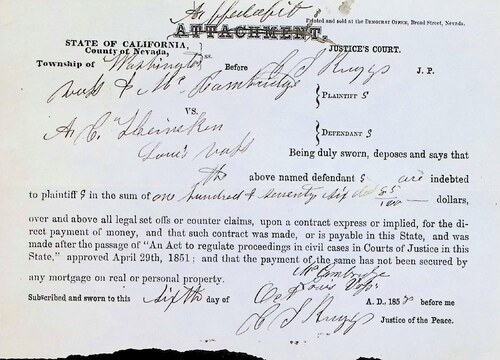 Affidavit
Printed and sold at the DEMOCRAT OFFICE, Broad Street, Nevada.
ATTACHMENT,
STATE OF CALIFORNIA, } ss.
County of Nevada,
JUSTICE'S COURT.
Township of Washington Before C S Kruggs J. P.
Voss & Mc Cambridge } PLAINTIFF S
VS.
A C Theineken } DEFENDANT S
Louis Voss
Being duly sworn, deposes and says that
the above named defendant s are indebted
to plaintiff S in the sum of one hundred & seventy six dol 85/100 dollars,
over and above all legal set offs or counter claims, upon a contract express or implied, for the di-
rect payment of money, and that such contract was made, or is payable in this State, and was
made after the passage of "An Act to regulate proceedings in civil cases in Courts of Justice in this
State," approved April 29th, 1851; and that the payment of the same has not been secured by
any mortgage on real or personal property.
Mc Cambridge
Louis Voss
Subscribed and sworn to this sixth day of Oct A. D., 185 before me
C S Kruggs
Justice of the Peace.